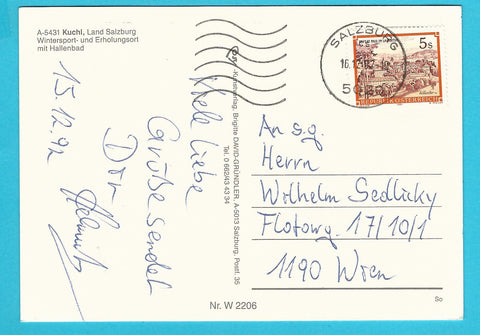 A-5431 Kuchl, Land Salzburg
Wintersport- und Erholungsort
mit Hallenbad
15.12.92
Viele liebe
Grüße sendet
Dir
Helmut
Kunstverlag Brigitte DAVID-GRÜNDLER, A-5013 Salzburg, Postf. 35
Tel. 0 662/43 43 34
SALZBURG
5 s
REPUBLIK ÖSTERREICH
An s.g.
Herrn
Wilhelm Sedlicky
Flotowg. 17/10/1
1190 Wien
Nr. W 2206
So